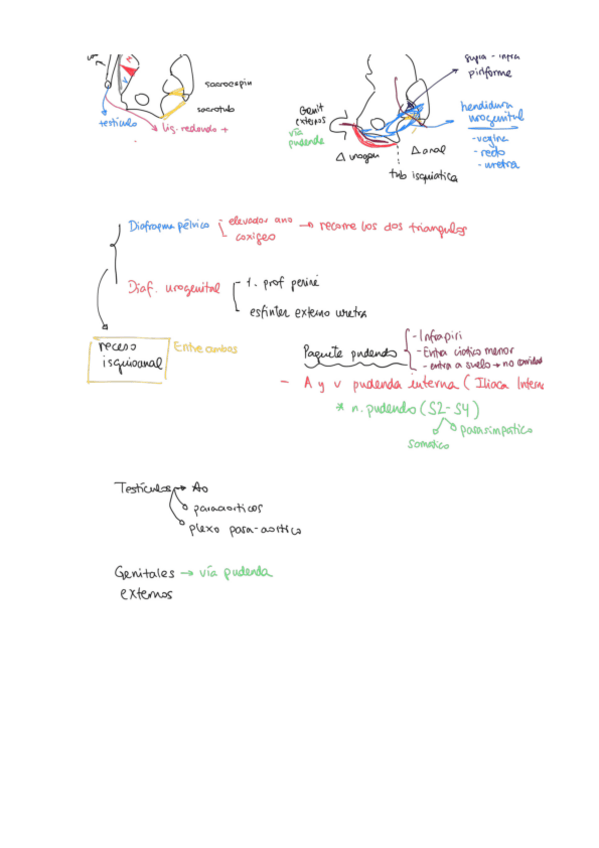 sacroespin
sacrotub
testículo
lig. redondo +
supra - infra
piriforme
Genit
externos
vía
pudenda
hendidura
urogenital
- vagina
- recto
- uretra
Δ urogen
Δ anal
tub isquiatica
Diafragma pélvico
elevador ano
coxígeo
→ recorre los dos triangulos
Diaf. urogenital
t. prof periné
esfinter externo uretra
receso
isquioanal
Entre ambos
Paquete pudendo
- Infrapiri
- Entra ciatico menor
- entra a suelo → no cavidad
- A y v pudenda interna ( Iliaca Interna
* n. pudendo (S2-S4)
somatico
parasimpatico
Testículos → Ao
paraaorticos
plexo para-aortico
Genitales → vía pudenda
externos